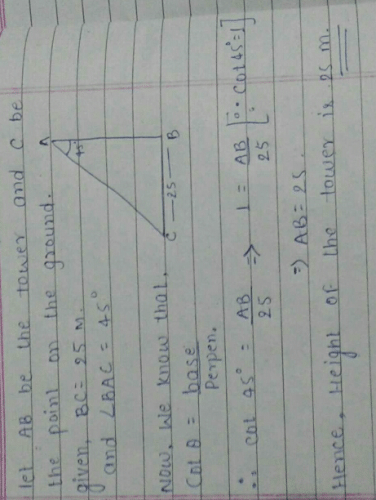 let AB be the tower and C be
the point on the ground.
given, BC = 25 m.
and ∠BAC = 45°
A
45°
C — 25 — B
Now, we know that,
Cot θ = base / Perpen.
∴ cot 45° = AB / 25 ⇒ 1 = AB / 25 [∵ Cot 45° = 1]
⇒ AB = 25.
Hence, Height of the tower is 25 m.